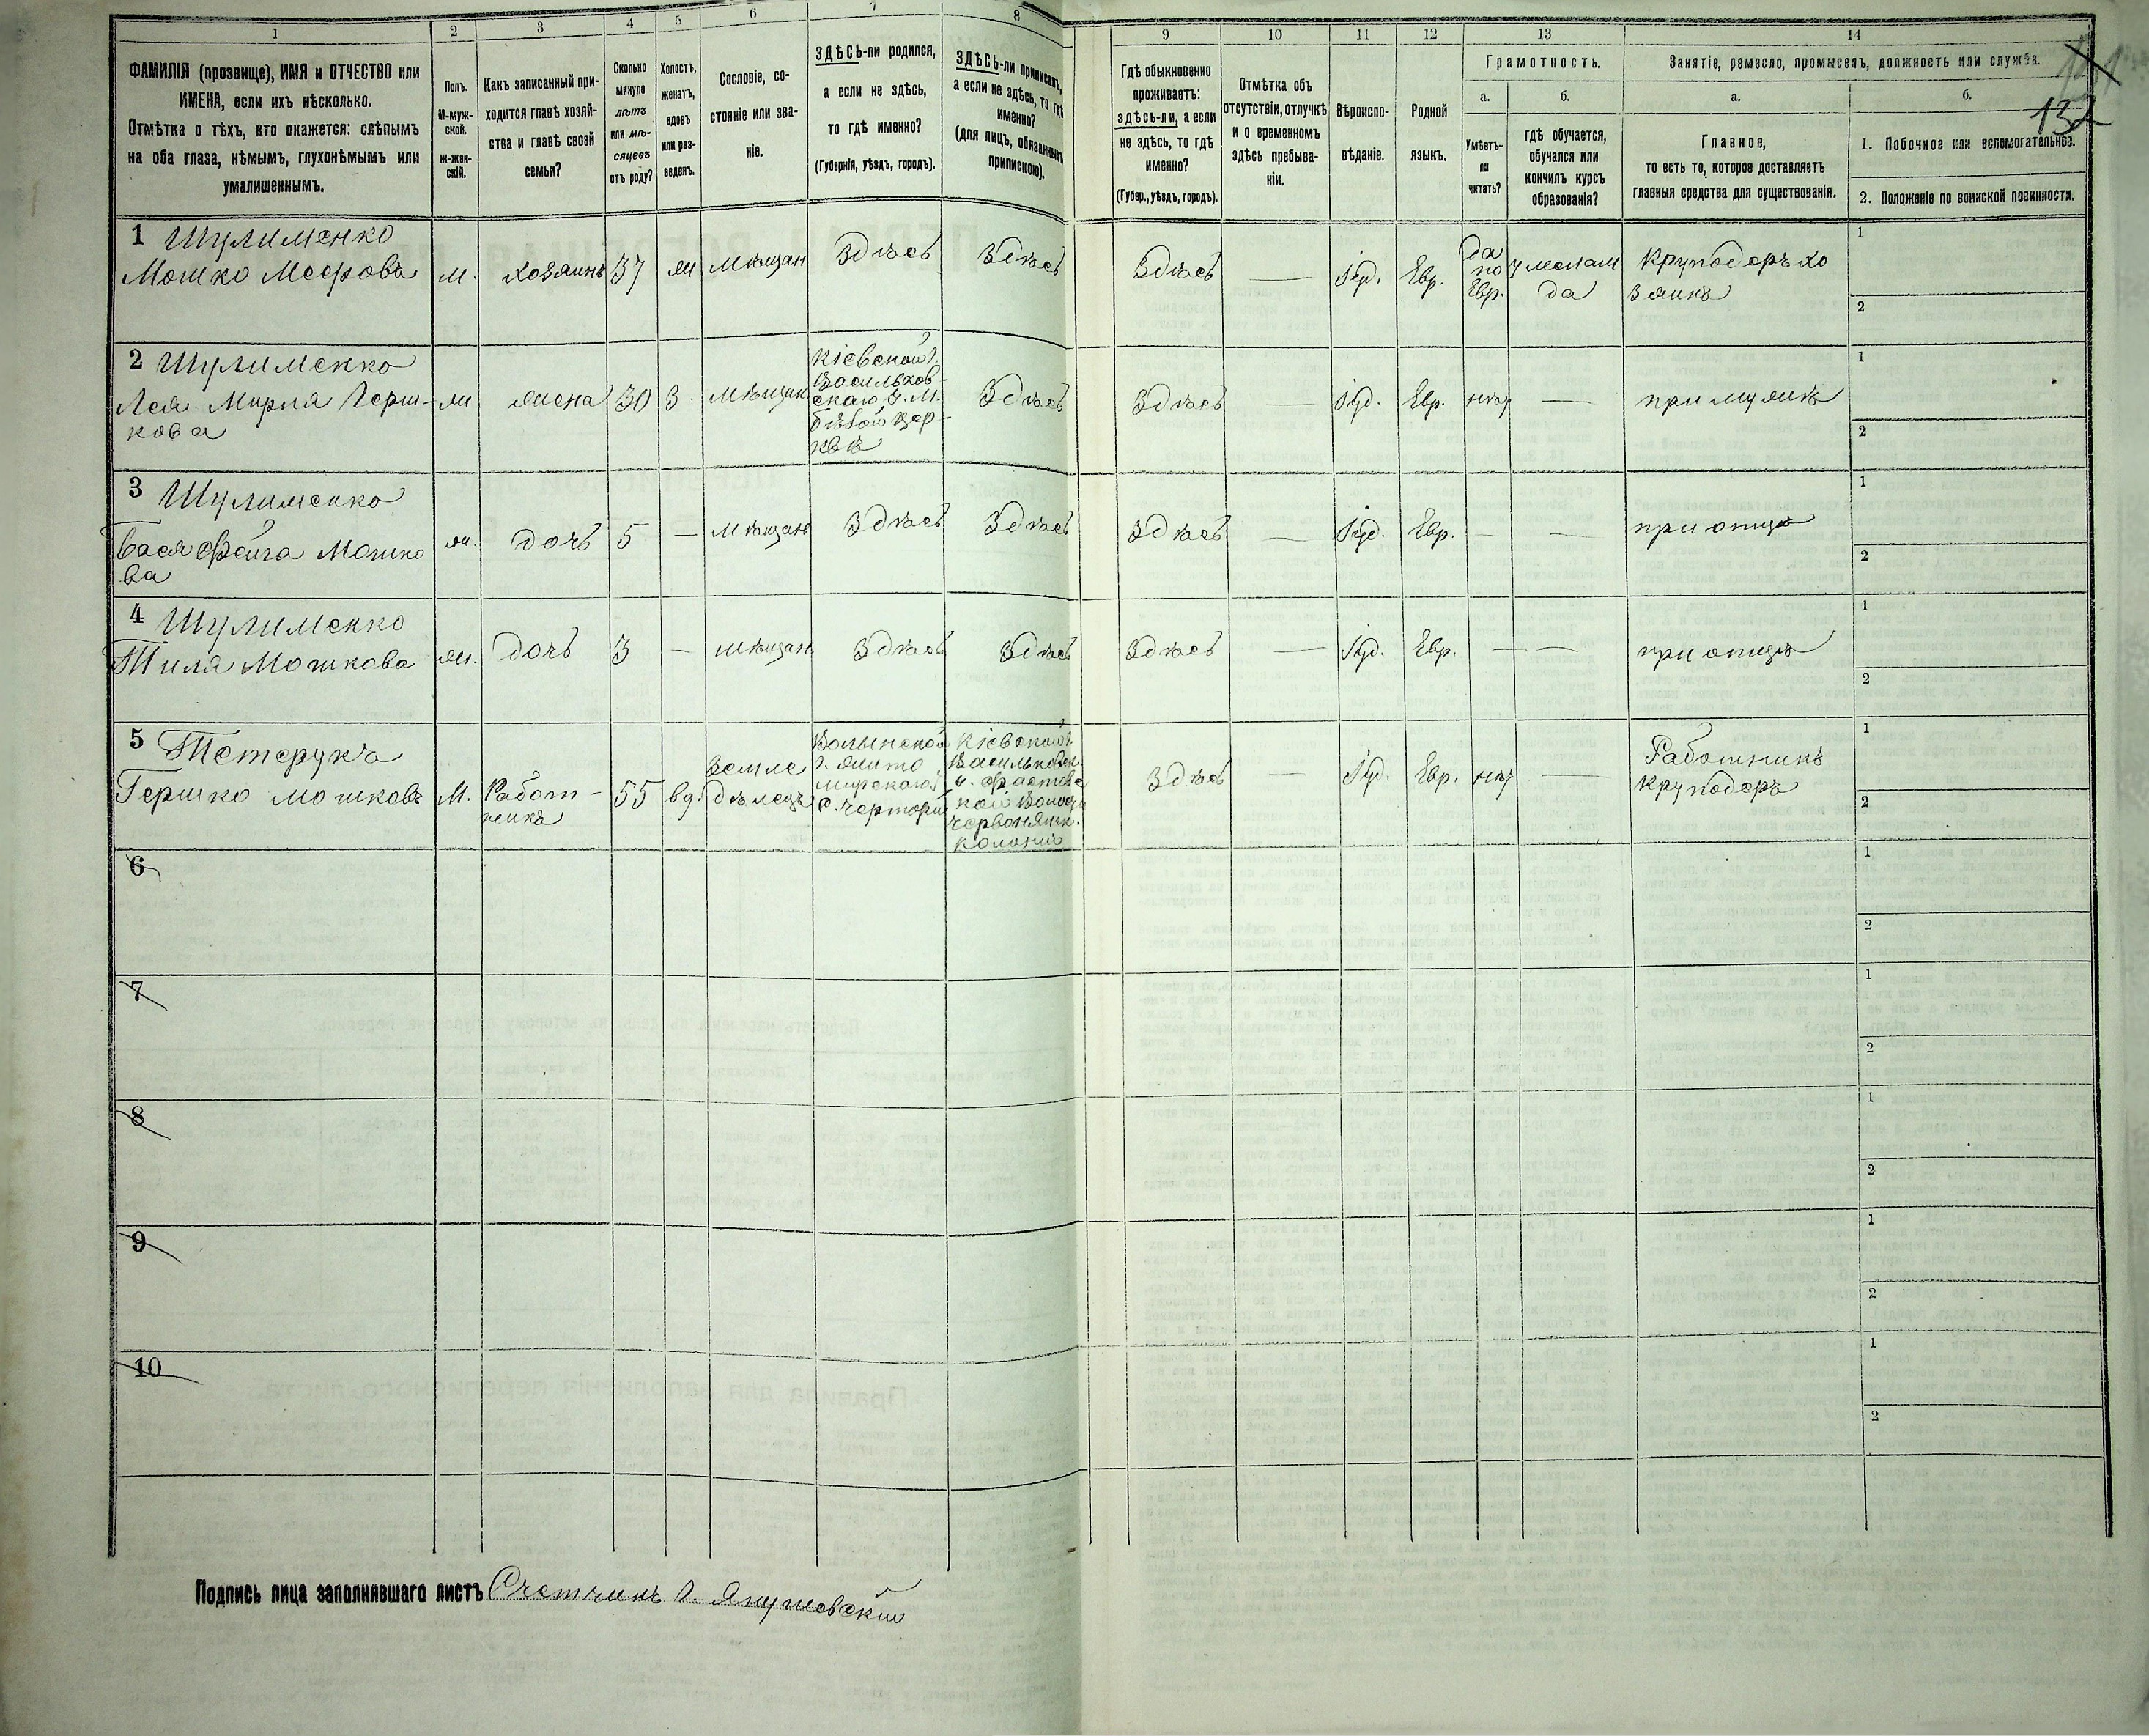 1 2 3 4 5 6 7 8 9 10 11 12 13 14
ФАМИЛІЯ (прозвище), ИМЯ и ОТЧЕСТВО или
ИМЕНА, если ихъ нѣсколько.
Отмѣтка о тѣхъ, кто окажется: слѣпымъ
на оба глаза, нѣмымъ, глухонѣмымъ или
умалишеннымъ.
Полъ.
М-муж-
ской.
ж-жен-
скій.
Какъ записанный при-
ходится главѣ хозяй-
ства и главѣ своей
семьи?
Сколько
минуло
лѣтъ
или мѣ-
сяцевъ
отъ роду?
Холостъ,
женатъ,
вдовъ
или раз-
веденъ.
Сословіе, со-
стояніе или зва-
ніе.
ЗДѢСЬ-ли родился,
а если не здѣсь,
то гдѣ именно?
(Губернія, уѣздъ, городъ).
ЗДѢСЬ-ли приписанъ,
а если не здѣсь, то гдѣ
именно?
(для лицъ, обязанныхъ
припискою).
Гдѣ обыкновенно
проживаетъ:
здѣсь-ли, а если
не здѣсь, то гдѣ
именно?
(Губер., уѣздъ, городъ).
Отмѣтка объ
отсутствіи, отлучкѣ
и о временномъ
здѣсь пребыва-
ніи.
Вѣроиспо-
вѣданіе.
Родной
языкъ.
Грамотность.
а.
Умѣетъ-
ли
читать?
б.
гдѣ обучается,
обучался или
кончилъ курсъ
образованія?
Занятіе, ремесло, промыселъ, должность или служба.
132
а.
Главное,
то есть то, которое доставляетъ
главныя средства для существованія.
б.
1. Побочное или вспомогательное.
2. Положеніе по воинской повинности.
1 Шулименко
Мошко Мееровъ
м. хозяинъ 37 ж мѣщан Здѣсь Здѣсь Здѣсь — Іуд. Евр.
да
по
Евр.
у мелам
да
Круподеръ хо
зяинъ
1
2
2 Шулименко
Лея Мирля Герш-
кова
ж жена 30 з мѣщан
Кіевской г.
Васильков-
скаго у. м.
Бѣлой Цер-
квѣ
Здѣсь Здѣсь — Іуд. Евр. нѣт — при мужѣ
1
2
3 Шулименко
Бася Фейга Мошко
ва
ж. дочь 5 — мѣщан Здѣсь Здѣсь Здѣсь — Іуд. Евр. — — при отцѣ
1
2
4 Шулименко
Тиля Мошкова
ж. дочь 3 — мѣщан Здѣсь Здѣсь Здѣсь — Іуд. Евр. — — при отцѣ
1
2
5 Тетерукъ
Гершко Мошковъ
М.
Работ-
никъ
55 вд.
Земле
дѣлецъ
Волынской
г. Жито
мирского
с. Чертори
Кіевской г.
Васильковск.
у. Фастов
кой Волости
Червонянск.
Колоніи
Здѣсь — Іуд. Евр. нѣт —
Работникъ
круподеръ
1
2
6
1
2
7
1
2
8
1
2
9
1
2
10
1
2
Подпись лица заполнявшаго листъ Счетчикъ Г. Янушевскій